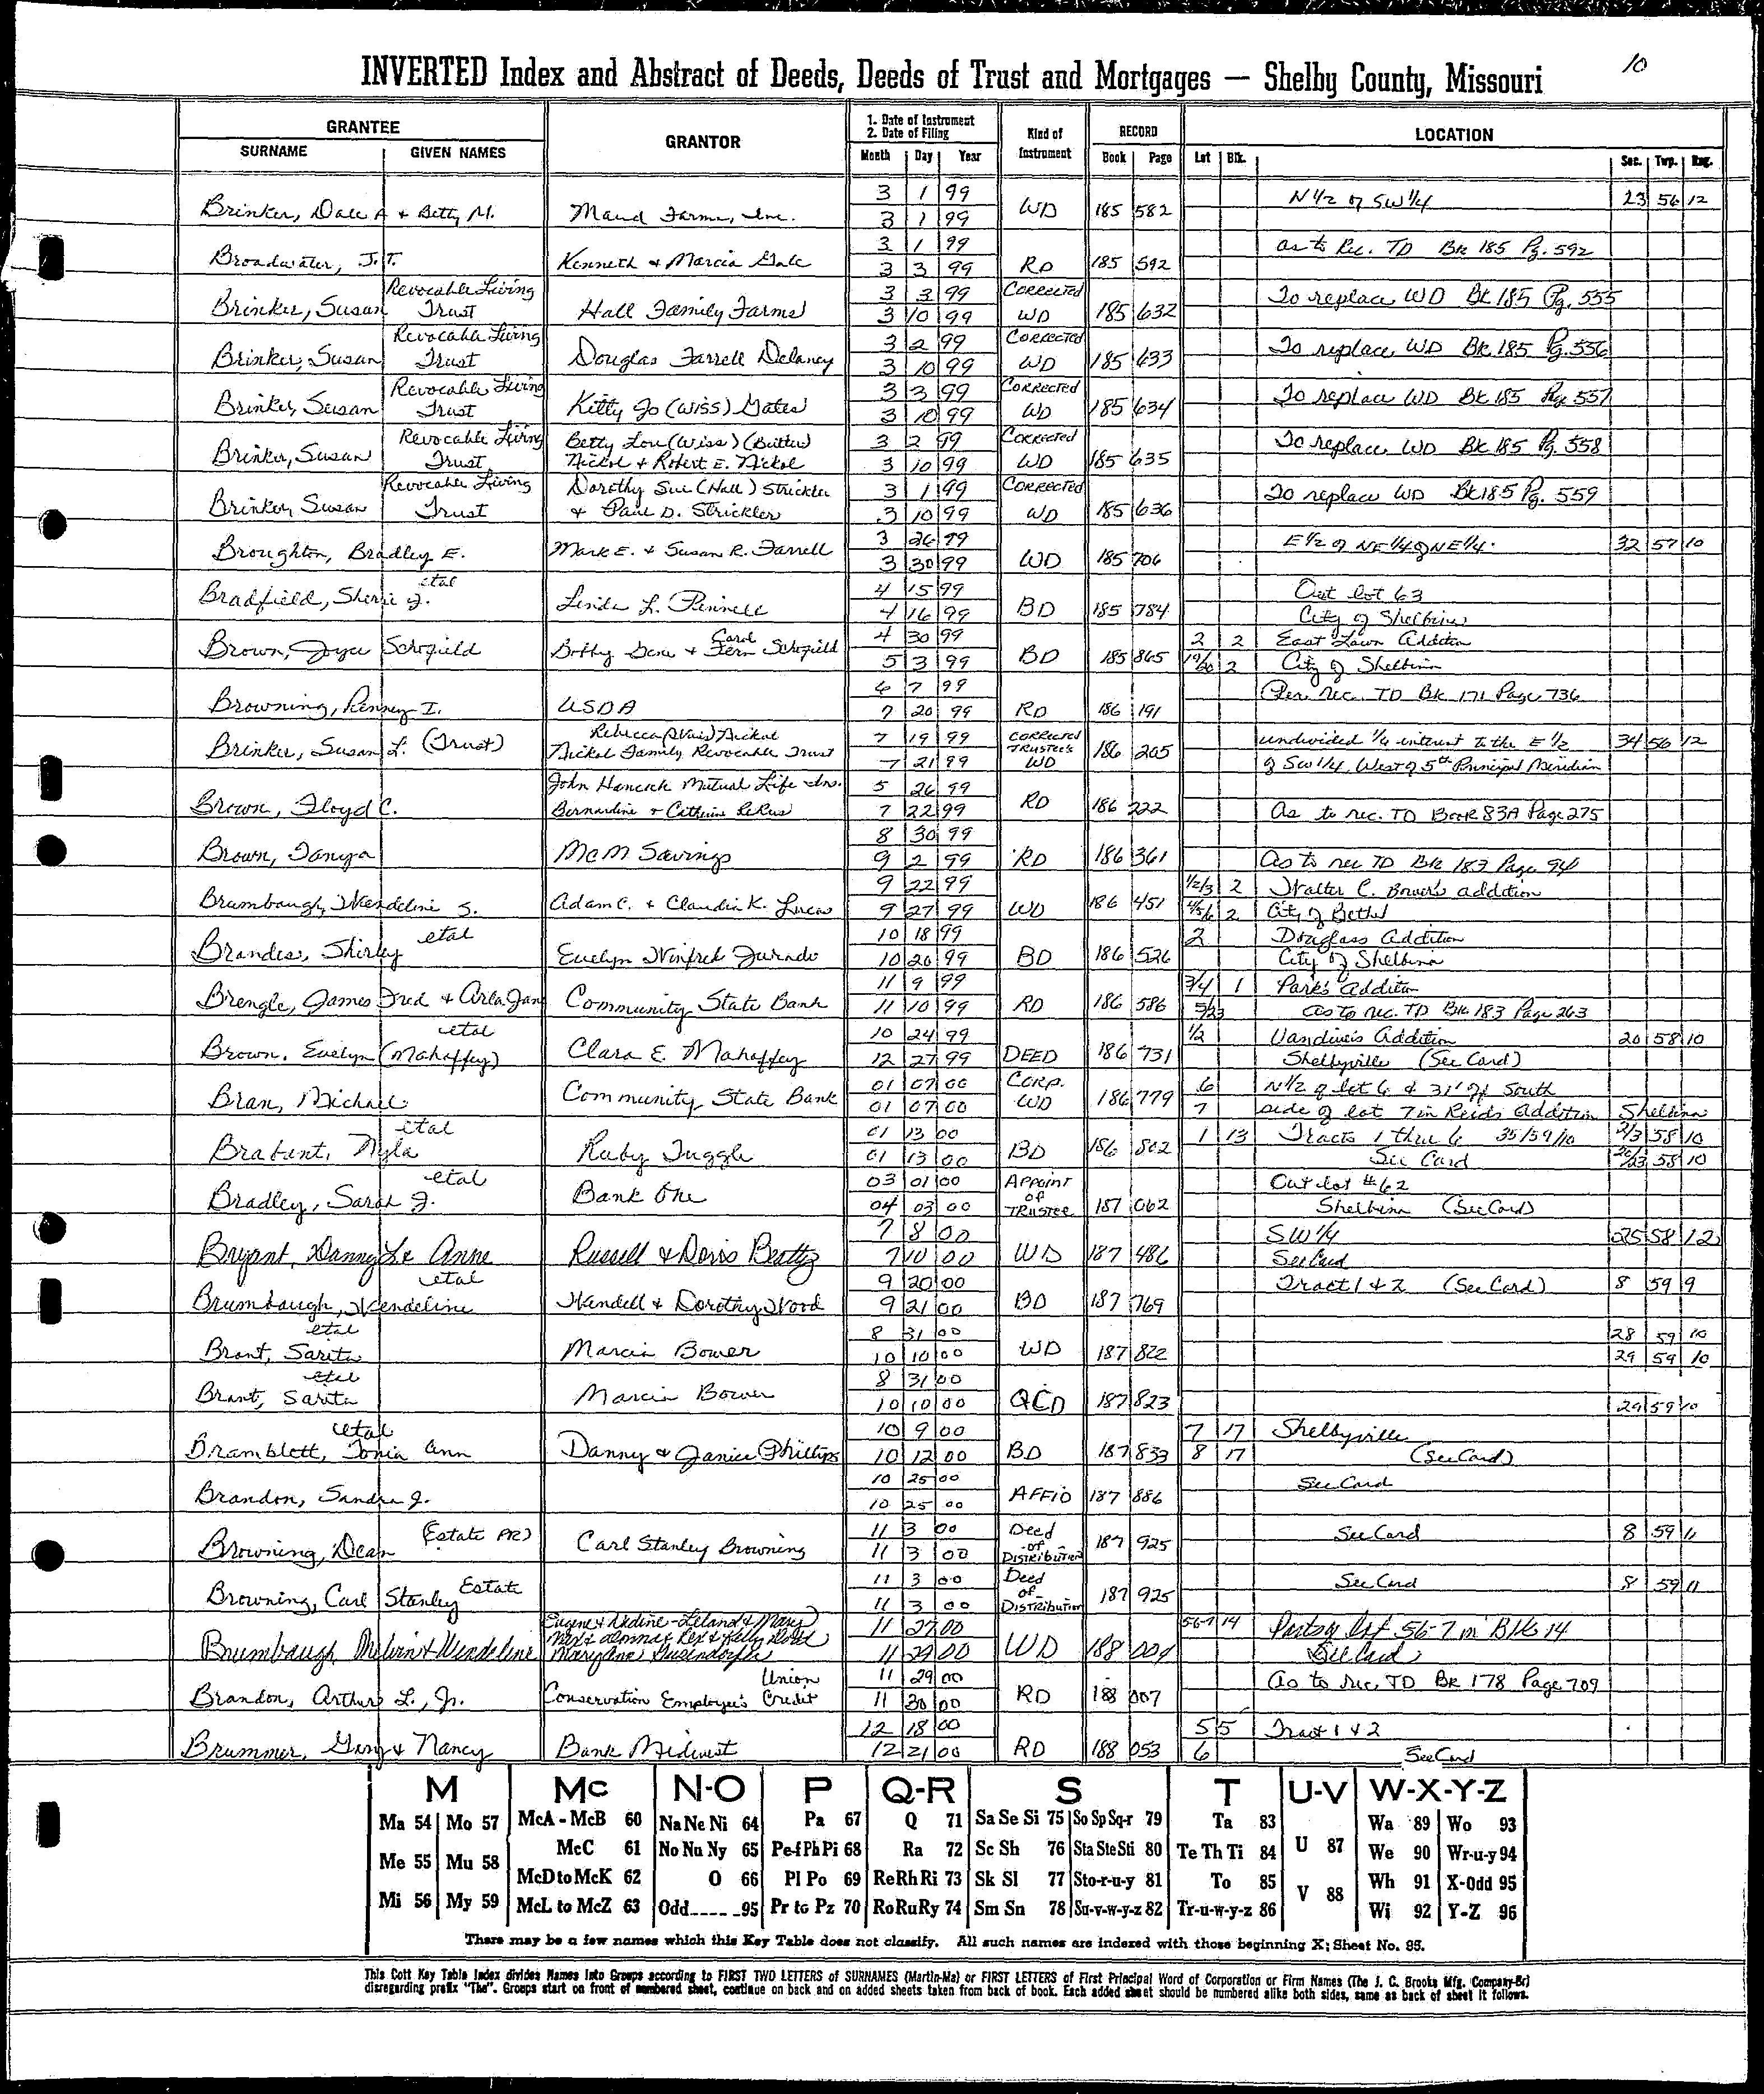 10
INVERTED Index and Abstract of Deeds, Deeds of Trust and Mortgages — Shelby County, Missouri
GRANTEE
SURNAME GIVEN NAMES
GRANTOR
1. Date of Instrument
2. Date of Filing
Month Day Year
Kind of Instrument
RECORD
Book Page
Lot Blk.
LOCATION
Sec. Twp. Rng.
3 1 99 N 1/2 of SW 1/4 23 56 12
Brinker, Dale A & Betty M. Maud Farms, Inc. 3 1 99 WD 185 582
3 1 99 as to Rec. TD Bk 185 Pg. 592
Broadwater, J.T. Kenneth & Marcia Gale 3 3 99 RD 185 592
Revocable Living 3 3 99 Corrected To replace WD Bk 185 Pg. 555
Brinker, Susan Trust Hall Family Farms 3 10 99 WD 185 632
Revocable Living 3 2 99 Corrected To replace WD Bk 185 Pg. 556
Brinker, Susan Trust Douglas Farrell Delaney 3 10 99 WD 185 633
Revocable Living 3 3 99 Corrected To replace WD Bk 185 Pg. 557
Brinker, Susan Trust Kitty Jo (Wiss) Gates 3 10 99 WD 185 634
Revocable Living Betty Lou (Wiss) (Butler) 3 2 99 Corrected To replace WD Bk 185 Pg. 558
Brinker, Susan Trust Nickol & Robert E. Nickol 3 10 99 WD 185 635
Revocable Living Dorothy Sue (Hall) Strickler 3 1 99 Corrected To replace WD Bk 185 Pg. 559
Brinker, Susan Trust & Paul D. Strickler 3 10 99 WD 185 636
3 26 99 E 1/2 of NE 1/4 of NE 1/4. 32 57 10
Broughton, Bradley E. Mark E. & Susan R. Farrell 3 30 99 WD 185 706
etal 4 15 99 Out lot 63
Bradfield, Sherri J. Linda L. Pennell 4 16 99 BD 185 784 City of Shelbina
Carol 4 30 99 2 2 East Lawn Addition
Brown, Joyce Schofield Bobby Gene & Fern Schofield 5 3 99 BD 185 865 19/20 2 City of Shelbina
6 7 99 Per rec. TD Bk 171 Page 736
Browning, Kenney I. USDA 7 20 99 RD 186 191
Rebecca Nickol 7 19 99 Corrected undivided 1/4 interest to the E 1/2 34 56 12
Brinker, Susan L. (Trust) Nickol Family Revocable Trust 7 21 99 Trustee's WD 186 205 of SW 1/4 West of 5th Principal Meridian
John Hancock Mutual Life Ins. 5 26 99
Brown, Floyd C. Bernardine & Catherine 7 22 99 RD 186 222 As to rec. TD Book 83A Page 275
8 30 99
Brown, Tanya McM Savings 9 2 99 RD 186 361 as to rec TD Bk 183 Page 94
9 22 99 1/2/3 2 Walter C. Bower's addition
Brumbaugh, Wendeline S. Adam C. & Claudia K. Lucas 9 27 99 WD 186 451 4/5/6 2 City of Bethel
etal 10 18 99 2 Douglass Addition
Brandes, Shirley Evelyn Winfred Jurado 10 20 99 BD 186 526 City of Shelbina
11 9 99 3/4 1 Park's addition
Brengle, James Fred & Arla Jan Community State Bank 11 10 99 RD 186 586 5/23 as to rec. TD Bk 183 Page 263
etal 10 24 99 1/2 Vandiver's Addition 20 58 10
Brown, Evelyn (Mahaffey) Clara E. Mahaffey 12 27 99 DEED 186 731 Shelbyville (See Card)
01 07 00 Corp. 6 N 1/2 of lot 6 & 31' off South
Bran, Michael Community State Bank 01 07 00 WD 186 779 7 side of lot 7 in Reid's Addition Shelbina
etal 01 13 00 1 13 Tracts 1 thru 6 35/59/10 2/3 58 10
Brabant, Nyla Ruby Tuggle 01 13 00 BD 186 802 See Card 58 10
etal 03 01 00 Appoint of Out lot #62
Bradley, Sarah J. Bank One 04 03 00 Trustee 187 062 Shelbina (See Card)
7 8 00 SW 1/4 25 58 12
Bryant, Danny L & Anne Russell & Doris Beatty 7 10 00 WD 187 486 See Card
etal 9 20 00 Tract 1 & 2 (See Card) 8 59 9
Brumbaugh, Wendeline Wendell & Dorothy Wood 9 21 00 BD 187 769
etal 8 31 00 28 59 10
Brant, Sarita Marcia Bower 10 10 00 WD 187 822 29 59 10
etal 8 31 00
Brant, Sarita Marcia Bower 10 10 00 QCD 187 823 29 59 10
etal 10 9 00 7 17 Shelbyville
Bramblett, Tonia Ann Danny & Janice Phillips 10 12 00 BD 187 833 8 17 (See Card)
10 25 00 See Card
Brandon, Sandra J. 10 25 00 AFFID 187 886
(Estate PR) 11 3 00 Deed of See Card 8 59 11
Browning, Dean Carl Stanley Browning 11 3 00 Distribution 187 925
Estate 11 3 00 Deed of See Card 8 59 11
Browning, Carl Stanley 11 3 00 Distribution 187 925
Eugene & Nadine - Leland & Mary 11 27 00 56-7 14 Parts of lot 56-7 in Blk 14
Brumbaugh, Melvin & Wendeline 11 29 00 WD 188 004 See Card
Union 11 29 00 As to rec. TD Bk 178 Page 709
Brandon, Arthur L., Jr. Conservation Employee's Credit 11 30 00 RD 188 007
12 18 00 5 5 Tract 1 & 2
Brummer, Gary & Nancy Bank Midwest 12 21 00 RD 188 053 6 See Card
M Mc N-O P Q-R S T U-V W-X-Y-Z
Ma 54 Mo 57 McA - McB 60 Na Ne Ni 64 Pa 67 Q 71 Sa Se Si 75 So Sp Sq-r 79 Ta 83 Wa 89 Wo 93
McC 61 No Nu Ny 65 Pe-f Ph Pi 68 Ra 72 Sc Sh 76 Sta Ste Sti 80 Te Th Ti 84 U 87 We 90 Wr-u-y 94
Me 55 Mu 58 McD to McK 62 O 66 Pl Po 69 Re Rh Ri 73 Sk Sl 77 Sto-r-u-y 81 To 85 Wh 91 X-Odd 95
Mi 56 My 59 McL to McZ 63 Odd 95 Pr to Pz 70 Ro Ru Ry 74 Sm Sn 78 Su-v-w-y-z 82 Tr-u-w-y-z 86 V 88 Wi 92 Y-Z 96
There may be a few names which this Key Table does not classify. All such names are indexed with those beginning X; Sheet No. 95.
This Cott Key Table Index divides Names into Groups according to FIRST TWO LETTERS of SURNAMES (Martin-Ma) or FIRST LETTERS of First Principal Word of Corporation or Firm Names (The J. C. Brooks Mfg. Company-Br)
disregarding prefix "The". Groups start on front of numbered sheet, continue on back and on added sheets taken from back of book. Each added sheet should be numbered alike both sides, same as back of sheet it follows.